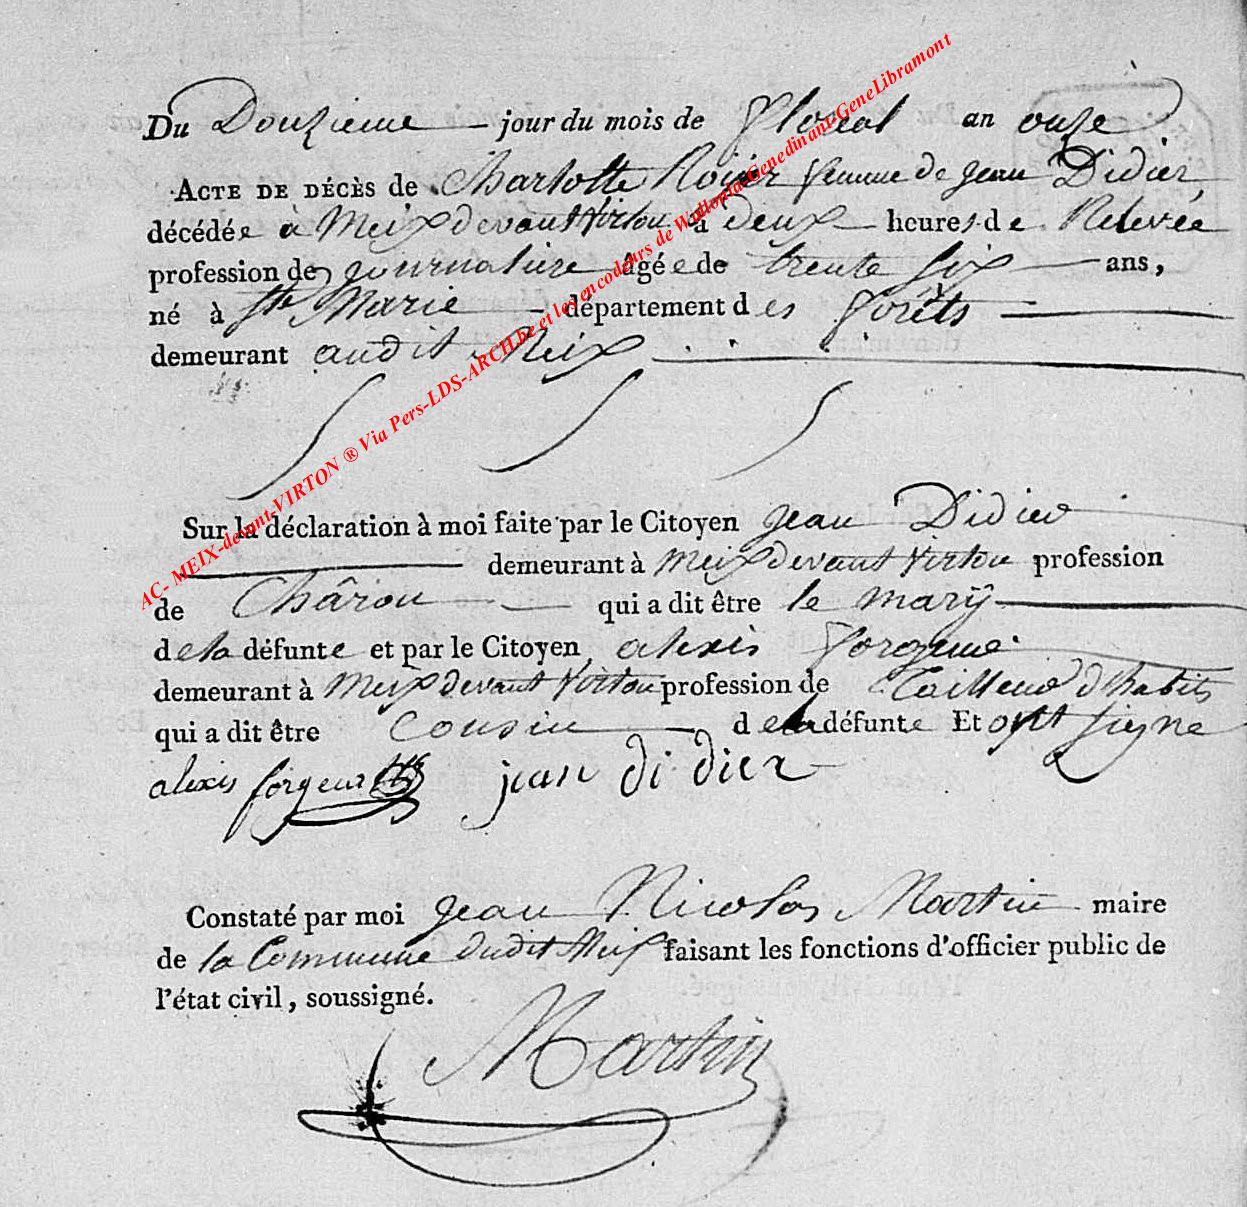 Du Douzieme jour du mois de floréal an onze
ACTE DE DÉCÈS de Charlotte Noizer femme de Jean Didier,
décédée à Meix devant Virton à deux heures de Relevée
profession de journaliere âgée de trente six ans,
né à Ste Marie département des forêts
demeurant audit Meix
Sur la déclaration à moi faite par le Citoyen Jean Didier
demeurant à Meix devant Virton profession
de Châron qui a dit être le marÿ
de la défunte et par le Citoyen alexis forgeur
demeurant à Meix devant Virton profession de Tailleur d'habits
qui a dit être Cousin de la défunte Et ont signe
alexis forgeur jean didier
Constaté par moi Jean Nicolas Martin maire
de la Commune dudit Meix faisant les fonctions d'officier public de
l'état civil, soussigné.
Martin
AC- MEIX-devant-VIRTON ® Via Pers-LDS-ARCH.be et les encodeurs de Wallonia-Genedinant-GeneLibramont